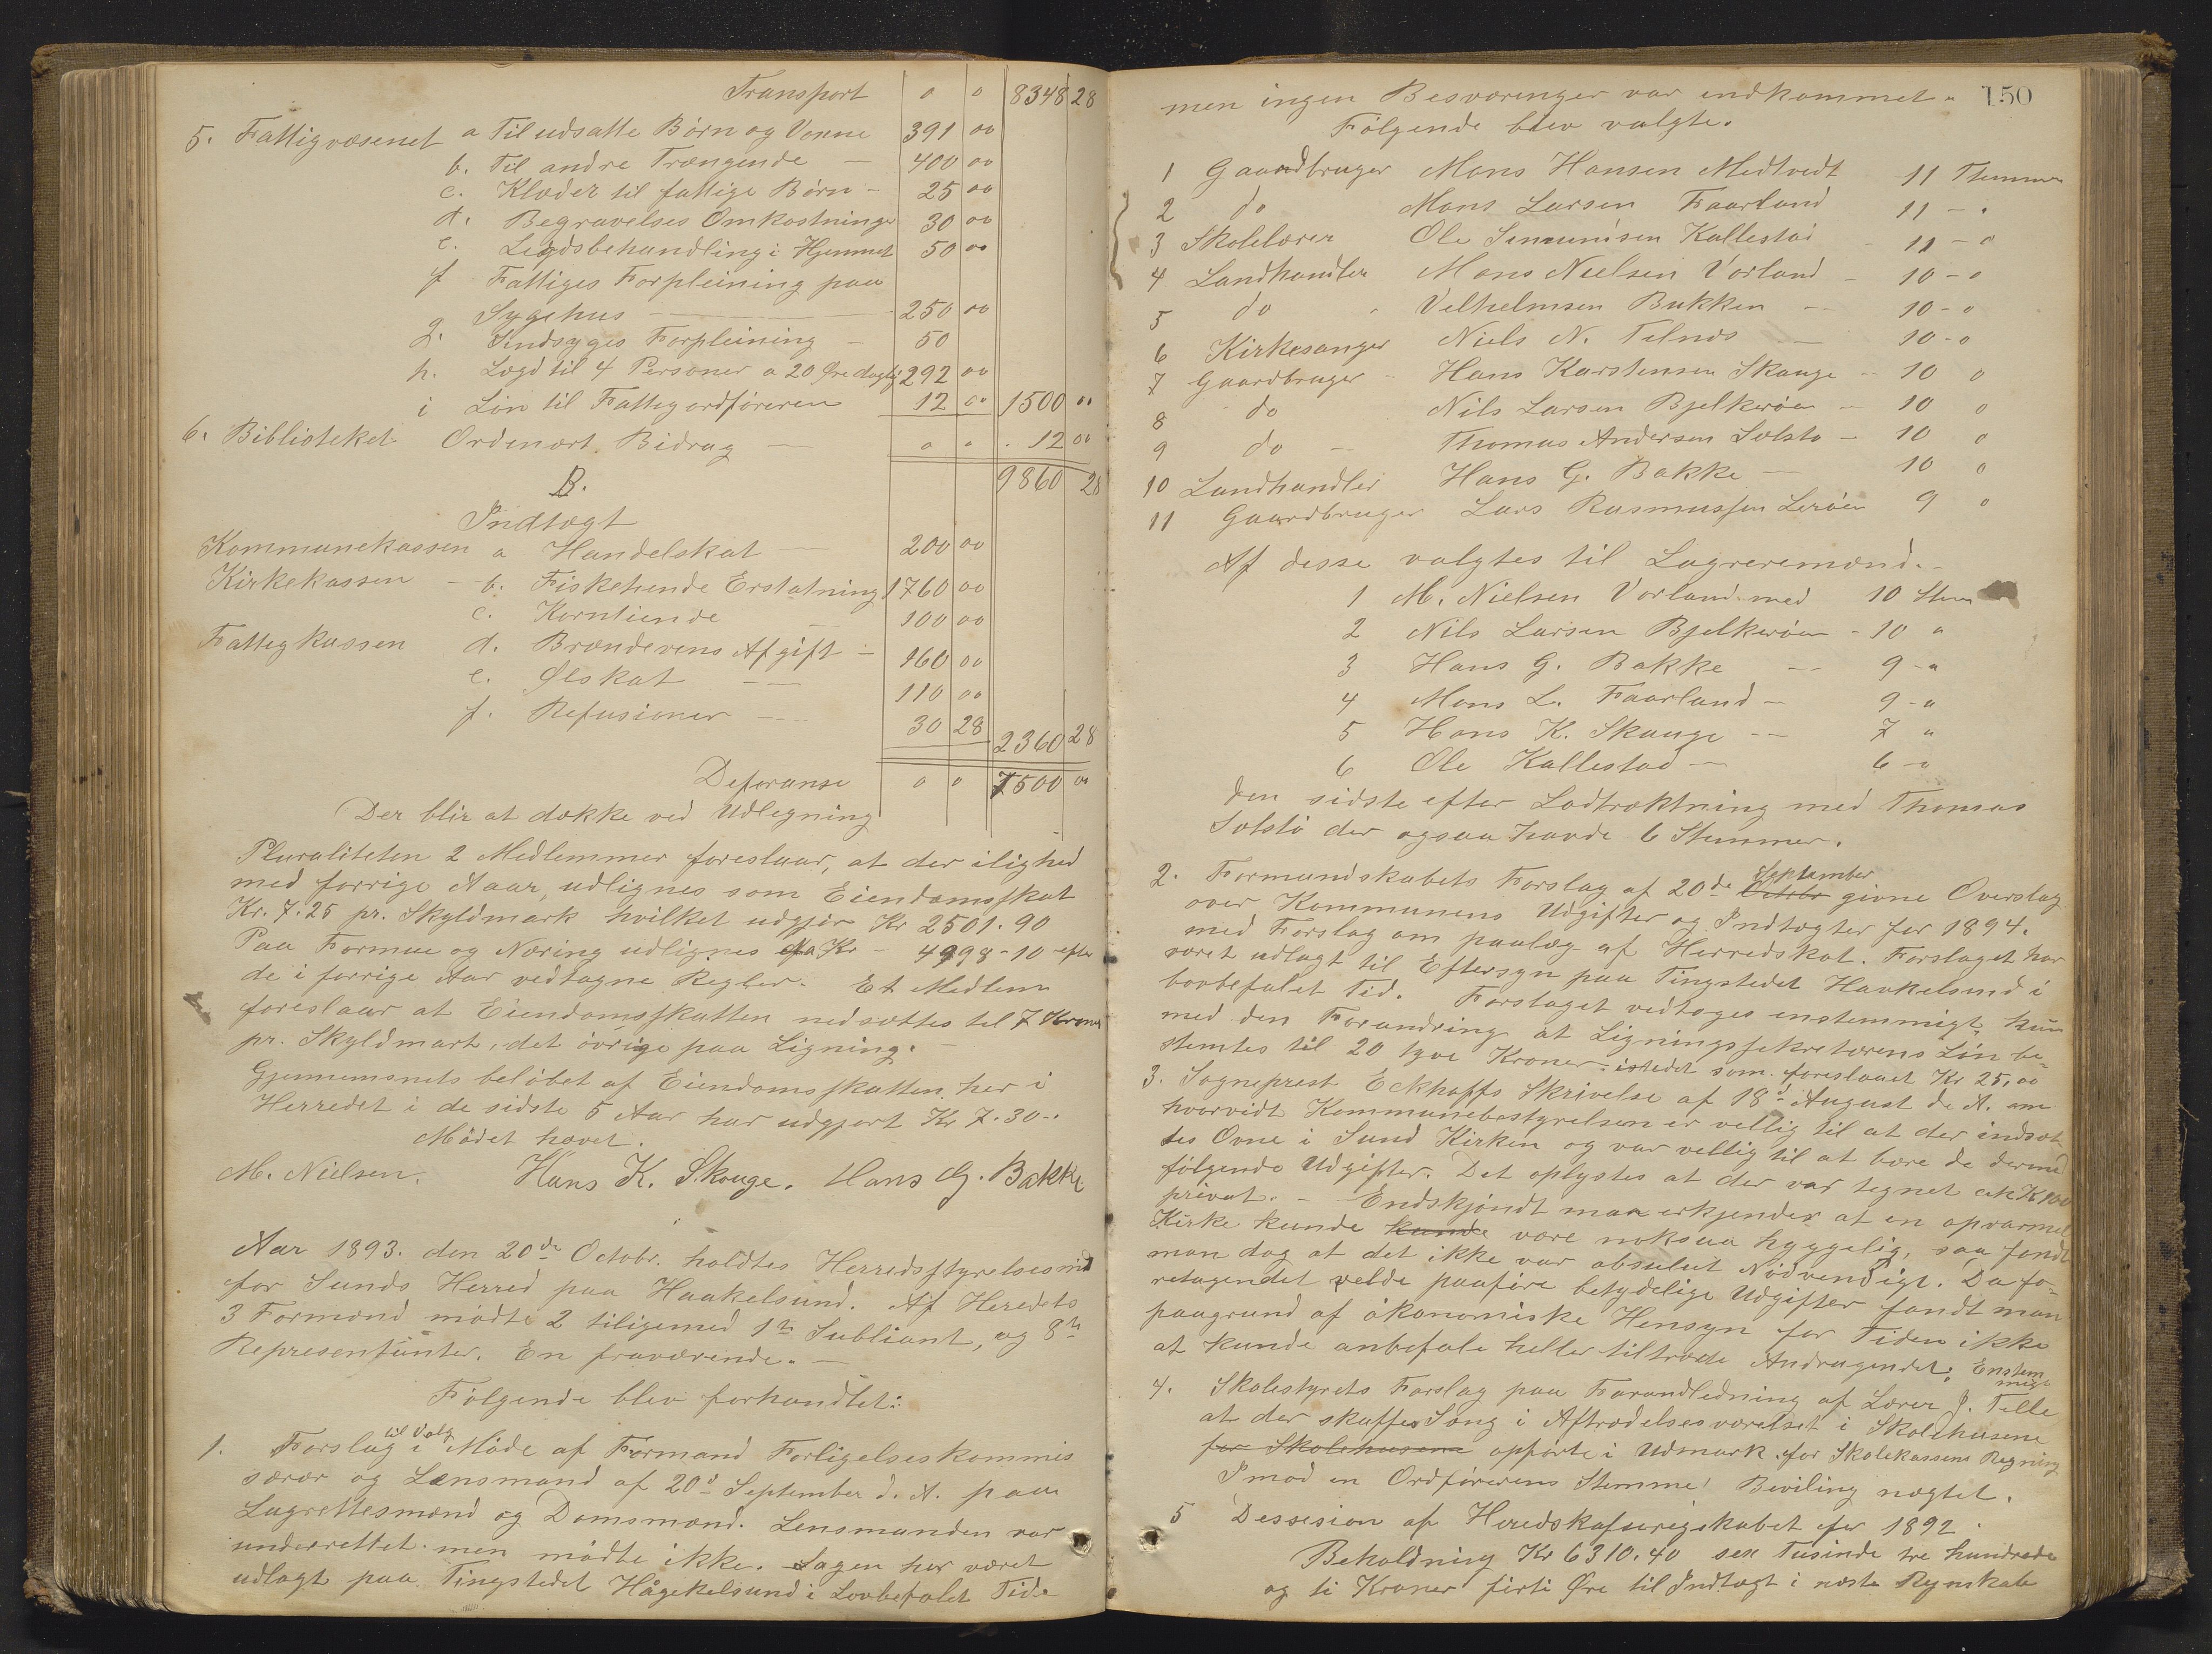 Transport " " 8348 28
5. Fattigvæsenet a Til udsatte Børn og Voxne 391 00
b. Til andre Trængende — 400 00
c. Klæder til fattige Børn - 25 00
d. Begravelses Omkostninger 30 00
e. Legdsbehandling i Hjemmet 50 00
f Fattiges Forpleining paa
Sygehus — 250 00
g. Sindsyges Forpleining — 50
h. Lægd til 4 Personer a 20 Øre daglig 292 00
i Løn til Fattigordføreren 12 00 1500 00
6. Biblioteket Ordinært Bidrag — " " 12 00
9860 28
B.
Indtægt
Kommunekassen a Handelskat — 200 00
Kirkekassen — b. Fisketiende Erstatning 1760 00
c. Korntiende — 100 00
Fattigkassen d. Brændevins Afgift — 160 00
e. Ølskat — 110 00
f. Refusioner — 30 28 2360 28
Deferanse " " 7500 00
Der blir at dække ved Udlegning
Pluraliteten 2 Medlemmer foreslaar, at der ilighed
med forrige Aaar, udlignes som Eiendomsskat
Kr. 7.25 pr. Skyldmark hvilket udgjør Kr 2501.90
Paa Formue og Næring udlignes Kr - 4998-10 efter
de i forrige Aar vedtagne Regler. Et Medlem
foreslaar at Eiendomsskatten nedsættes til 7 Kroner
pr. Skyldmark, det övrige paa Ligning. —
Gjennemsnets beløbet af Eiendomsskatten her i
Herredet i de sidste 5 Aar har udgjort Kr 7.30-.
Mødet hævet.
M. Nielsen. Hans K. Skouge. Hans G. Bakke
Aar 1893. den 20de Octobr. holdtes Herredsstyrelsesmød
for Sunds Herred paa Haakelsund. Af Heredets
3 Formænd mødte 2 tiligemed 1te Subliant, og 8te
Representanter. En fraværende. —
Følgende blev forhandlet:
1. Forslag til Valg i Møde af Formand Forligelseskommis
særær og Lensmand af 20de September d. A. paa
Lagrettesmænd og Domsmænd. Lensmanden var
underrettet men mødte ikke. Sagen har været
udlagt paa Tingstedet Hågekelsund i Lovbefalet Tide
150
men ingen Besværinger var indkommet.
Følgende blev valgte.
1 Gaardbruger Mons Hansen Medtvedt - 11 Stemmer
2 do Mons Larsen Faarland 11 - "
3 Skolelærer Ole Simunisen Kallestad - 11 - "
4 Landhandler Mons Nielsen Vorland - 10 - "
5 do Velhelmsen Bukken — 10 - "
6 Kirkesanger Niels N. Telnæs — 10 - "
7 Gaardbruger - Hans Karstensen Skauge - 10 "
8 do Nils Larsen Bjelkerøen - 10 "
9 do — Thomas Andersen Solstø - 10 "
10 Landhandler Hans G. Bakke — 10 "
11 Gaardbruger Lars Rasmussen Lerøen 9 "
Af desse valgtes til Lagreremænd.-
1 M. Nielsen Vorland med 10 Stem
2 Nils Larsen Bjelkerøen - 10 "
3 Hans G. Bakke — 9 - "
4 Mons L. Faarland - 9 - "
5 Hans K. Skauge -- 7 "
6 Ole Kallestad — 6 - "
den sidste efter Lodtræktning med Thomas
Solstø der ogsaa havde 6 Stemmer.
2. Formandskabets Forslag af 20de September Octobr givne Overslag
over Kommunens Udgifter og Indtægter for 1894.
med Forslag om paalæg af Herredskat. Forslaget har
været udlagt til Eftersyn paa Tingstedet Haakelsund i
lovbefalet Tid. Forslaget vedtoges enstemmigt kun
med den Forandring at Ligningssekretærens Løn be-
stemtes til 20 tyve Kroner istedet som foreslaaet Kr 25,00
3. Sogneprest Eckhoffs Skrivelse af 18de August d. A. om
hvorvidt Kommunebestyrelsen er vellig til at der indsæt
tes Ovne i Sund Kirken og var vellig til at bære de dermed
følgende Udgifter. Det oplystes at der var tegnet ca K 100
privat. - Endskjøndt man erkjender at en opvarmet
Kirke kunde kunde være noksaa hyggelig, saa fandt
man dog at det ikke var absulut Nødvendigt. Da fo-
retagendet velde paaføre betydelige Udgifter fandt man
paagrund af økonomiske Hensyn for Tiden ikke
at kunde anbefale heller tiltræde Andragendet; Enstem
migt
4. Skolestyrets Forslag paa Forandledning af Lærer J. Telle
at der skaffes Sæng i Aftrædelsesværelset i Skolehusene
for Skolehusene opførte i Udmark for Skolekassens Regning
Imod en Ordførerens Stemme! Beviling nægtet.
5 Dessesion af Heredskaserigskabet for 1892.
Beholdning Kr 6310.40 sex Tusinde tre hundrede
og ti Kroner firti Øre til Indtægt i næste Regnskab